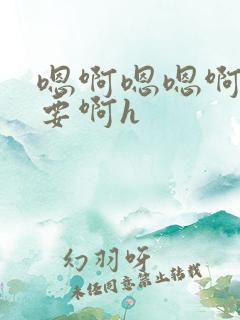 嗯啊嗯嗯啊
要啊h
幻羽呀
未经同意禁止转载